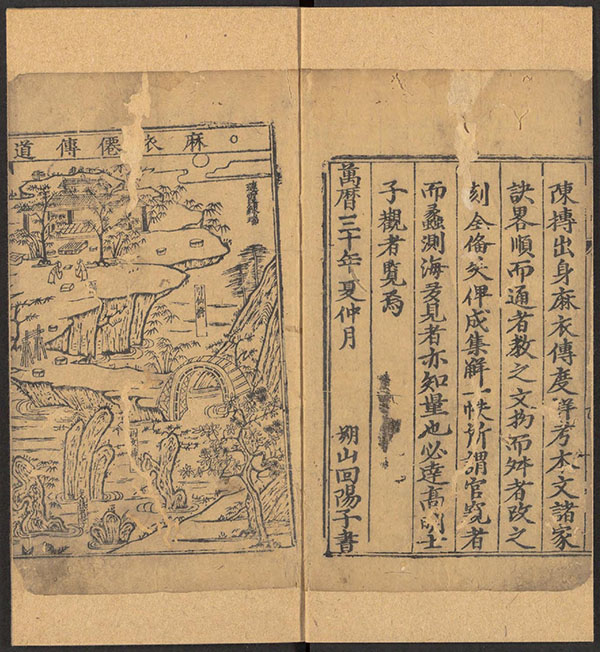 陳摶出身麻衣傳度詳考本文諸家
訣畧順而通者教之文拗而舛者改之
刻全備矣俾成集解一帙所謂管窺者
而蠡測海多見者亦知量也必達高明士
子觀者覽焉
萬曆三十年夏仲月 朔山回陽子書
麻衣僊傳道